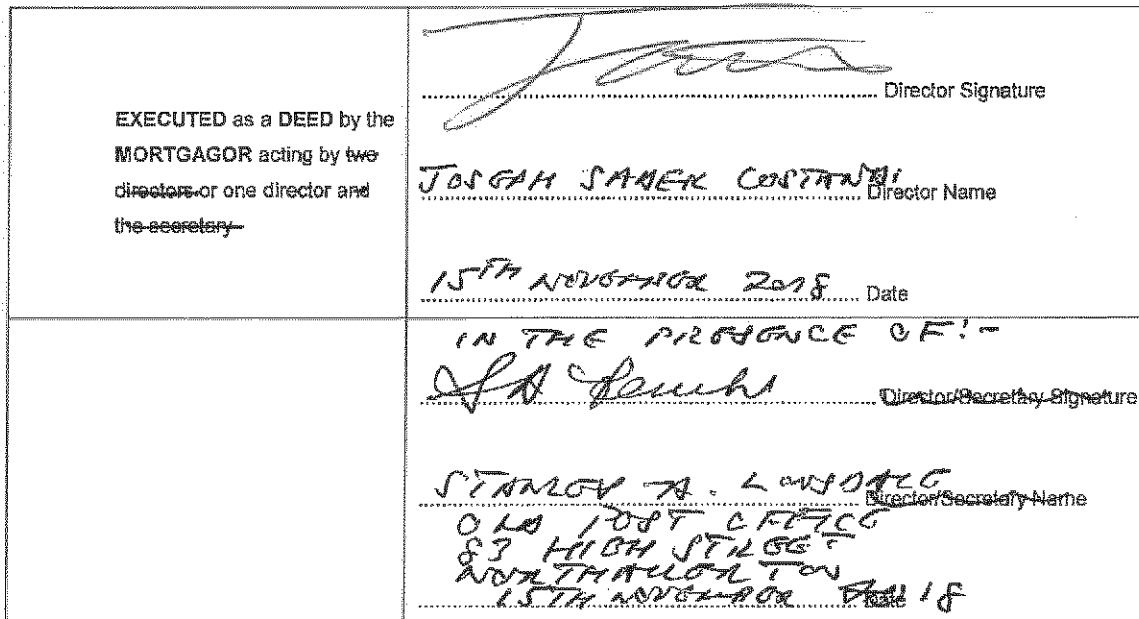 EXECUTED as a DEED by the
MORTGAGOR acting by two
directors or one director and
the secretary
Director Signature
JOSEPH SAMER COSTANDI Director Name
15TH NOVEMBER 2018 Date
IN THE PRESENCE OF:-
Director/Secretary Signature
STANLEY A. LONSDALE Director/Secretary Name
OLD POST OFFICE
83 HIGH STREET
NORTHALLERTON
15TH NOVEMBER Date 18